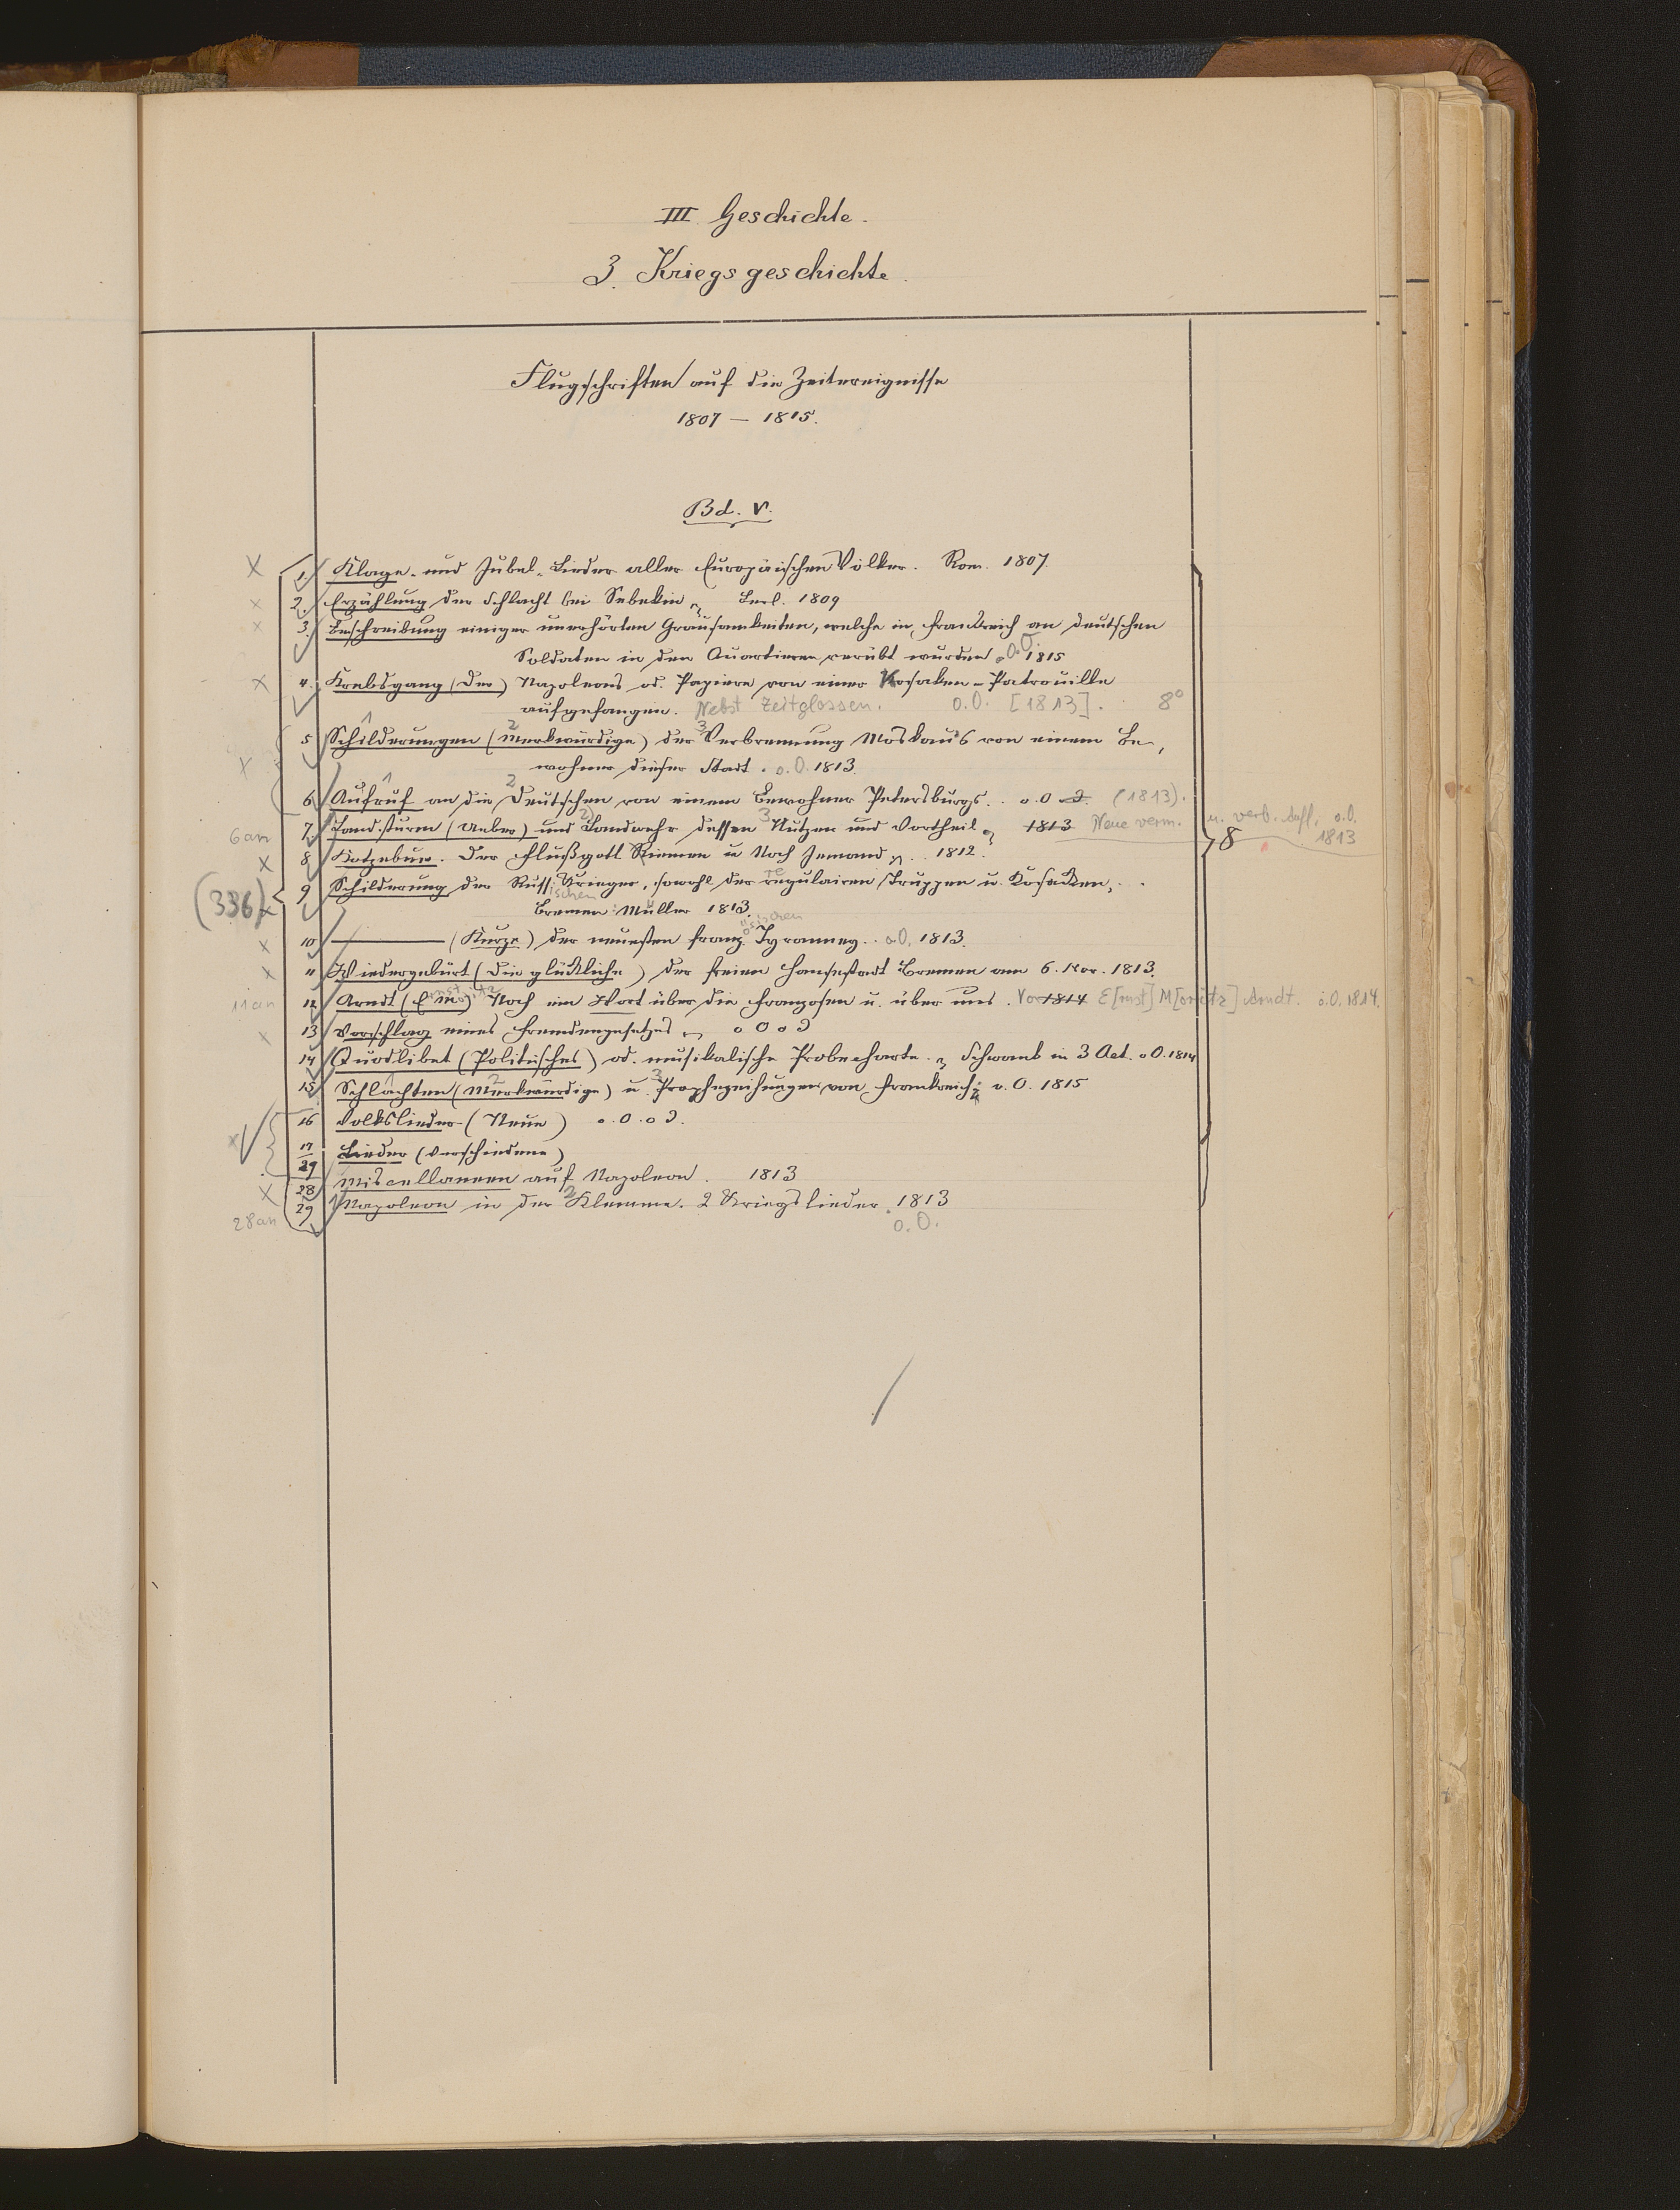 III. Geschichte.
3. Kriegsgeschichte.
Flugschriften auf die Zeitereignisse
1807 — 1815.
Bd. V.
X 1. Klage- und Jubel-Lieder aller Europäischen Völker. Rom. 1807.
x 2. Erzählung der Schlacht bei Berl. 1809
x 3. Beschreibung einiger unerhörten Grausamkeiten, welche in Frankreich an deutschen
Soldaten in den Quartieren verübt wurden o.O. 1815
x 4. Krebsgang (Der) Napoleons od. Papiere von einer Kosaken-Patrouille
aufgefangen. Nebst Zeitglossen. o.O. [1813]. 8°
5 Schilderungen (Merkwürdige) der Verbrennung Moskau's von einem Be-
x wohner dieser Stadt. o.O. 1813.
6 Aufruf an die Deutschen von einem Bewohner Petersburgs. o.O. (1813).
6an 7. Landsturm (Ueber) und Landwehr dessen Nutzen und Vortheil 1813 Neue verm. u. verb. Aufl. o.O. 1813
x 8 Kotzebue. Der Flußgott Niemen u Noch Jemand 1812. 8
9 Schilderung der Russischen Krieger, sowohl der regulairen Truppen u. Kosacken,
(336) x Bremen: Müller 1813.
x 10 — (Kurze) der neuesten französischen Tyranney. o.O. 1813.
x 11 Wiedergeburt (Die glückliche) der freien Hansestadt Bremen am 6. Nov. 1813.
11an 12. Arndt (Ernst Moritz) Noch ein Wort über die Franzosen u. über uns. Von 1814 E[rnst] M[oritz] Arndt. o.O. 1814.
x 13 Vorschlag eines Fremdengesetzes o O o J
14 Quodlibet (Politisches) od. musikalische Probecharte. Schwank in 3 Act. o O. 1814
15 Schlachten (Merkwürdige) u. Prophezeihungen von Frankreich; o. O. 1815
16 Volkslieder (Neue) o. O. o J.
x 17/29 Lieder (Verschiedene)
x 28 Miscellaneen auf Napoleon. 1813
28an 29 Napoleon in der Klemme. 2 Kriegslieder. 1813
o.O.